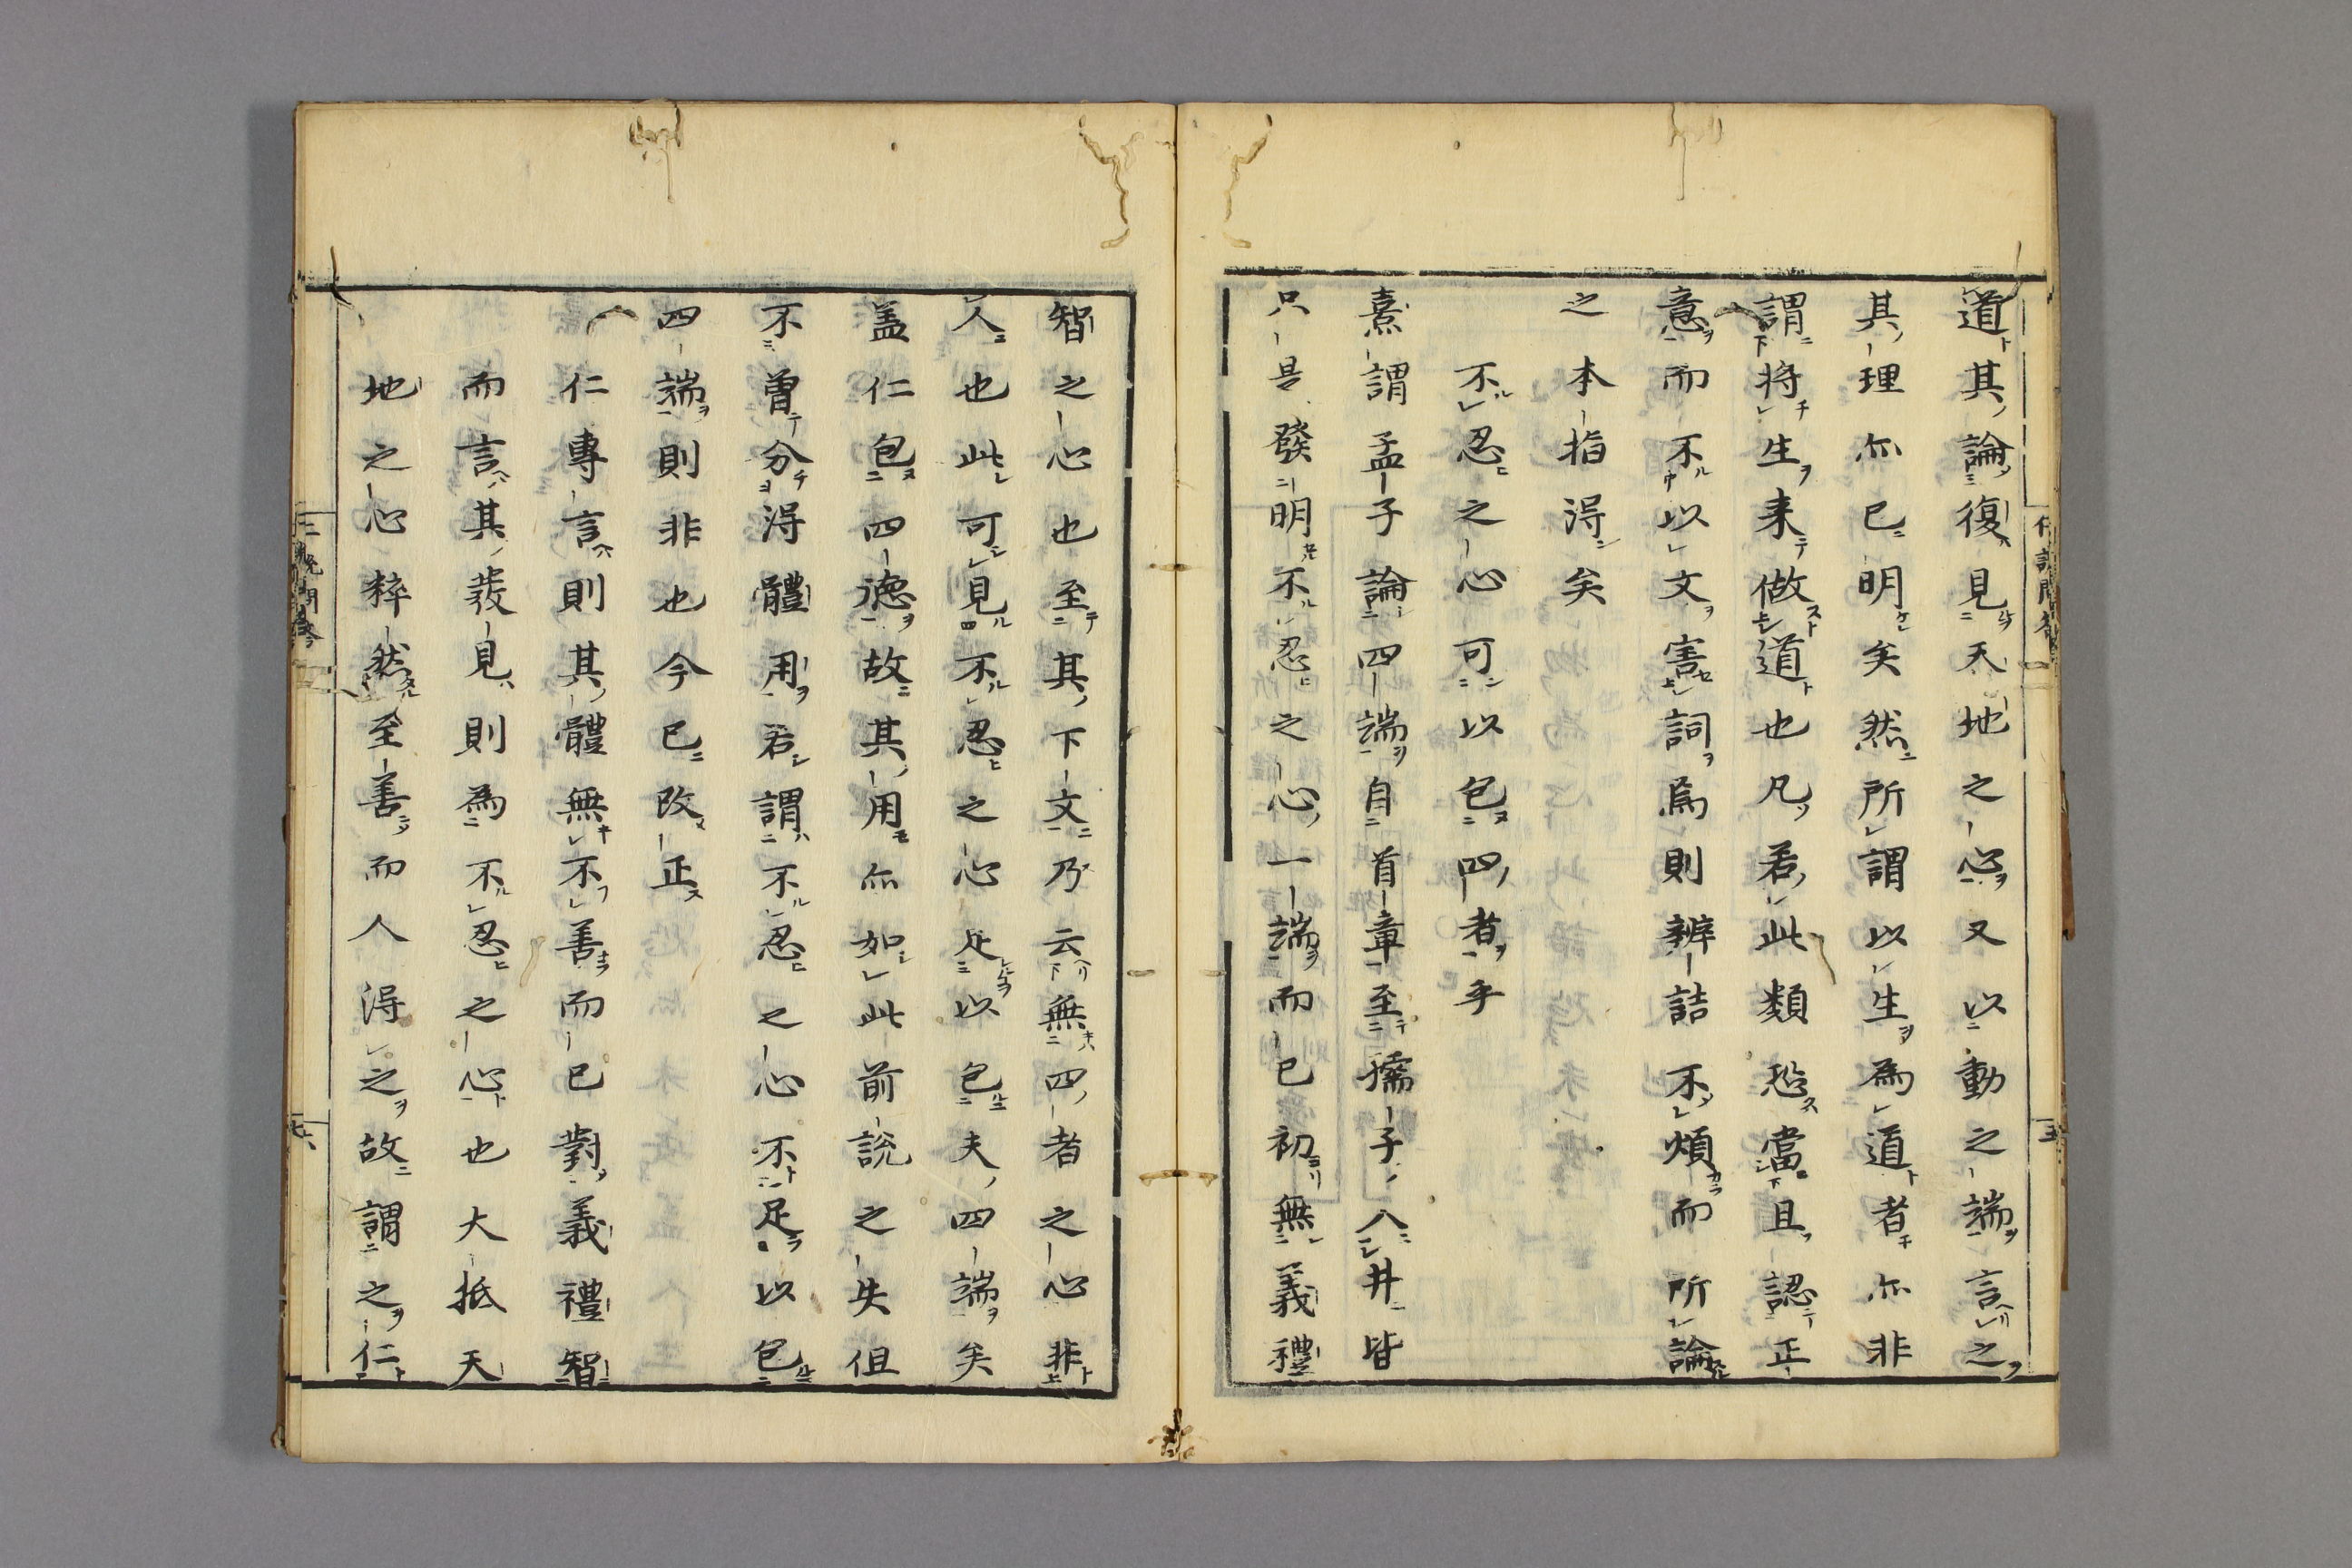 道其論復見天地之心又以動之端言之
其理亦已明矣然所謂以生為道者亦非
謂將生来做道也凡若此類恐當且認正
意而不以文害詞焉則辨詰不煩而所論
之本指得矣
不忍之心可以包四者乎
熹謂孟子論四端自首章至孺子入井皆
只是發明不忍之心一端而已初無義禮
智之心也至其下文乃云無四者之心非
人也此可見不忍之心足以包夫四端矣
盖仁包四德故其用亦如此前說之失但
不曾分得體用若謂不忍之心不足以包
四端則非也今已改正
仁專言則其體無不善而已對義禮智
而言其發見則為不忍之心也大抵天
地之心粹然至善而人得之故謂之仁